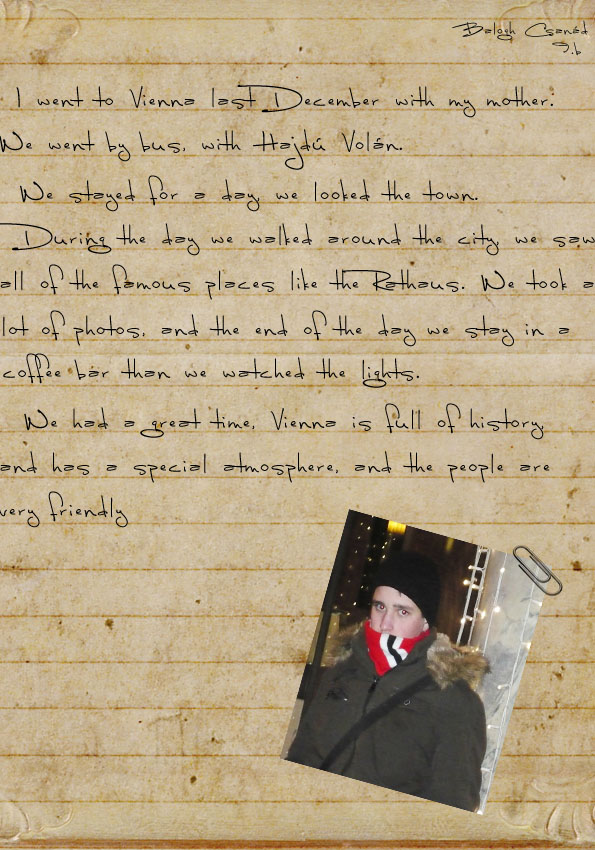 Balogh Csanád
9.b
I went to Vienna last December with my mother.
We went by bus, with Hajdú Volán.
We stayed for a day, we looked the town.
During the day we walked around the city, we saw
all of the famous places like the Rathaus. We took a
lot of photos, and the end of the day we stay in a
coffee bar than we watched the lights.
We had a great time, Vienna is full of history,
and has a special atmosphere, and the people are
very friendly